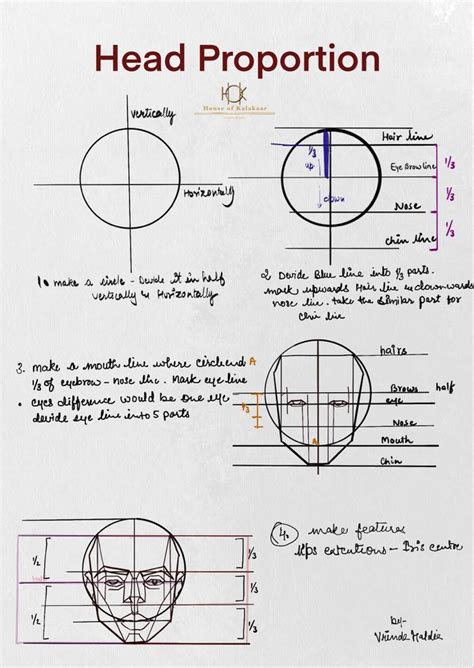 Head Proportion
HOK
House of Kalakaar
Vertically
Horizontally
Hair line
1/3
up
Eye Browline
1/3
down
1/3
Nose
1/3
Chin line
1. make a circle - Devide it in half
vertically & Horizontally
2. Devide Blue line into 1/3 parts.
mark upwards Hair line & downwards
nose line. take the similar part for
Chin line
3. make a mouth line where circle end A
1/3 of eyebrow - nose line. Mark eye line
• eyes difference would be one eye
devide eye line into 5 parts
hairs
Brows half
eye
1/3
Nose
A
Mouth
Chin
4. make features
lips extentions - Iris centre
1/2
1/3
1/3
1/2
1/3
by-